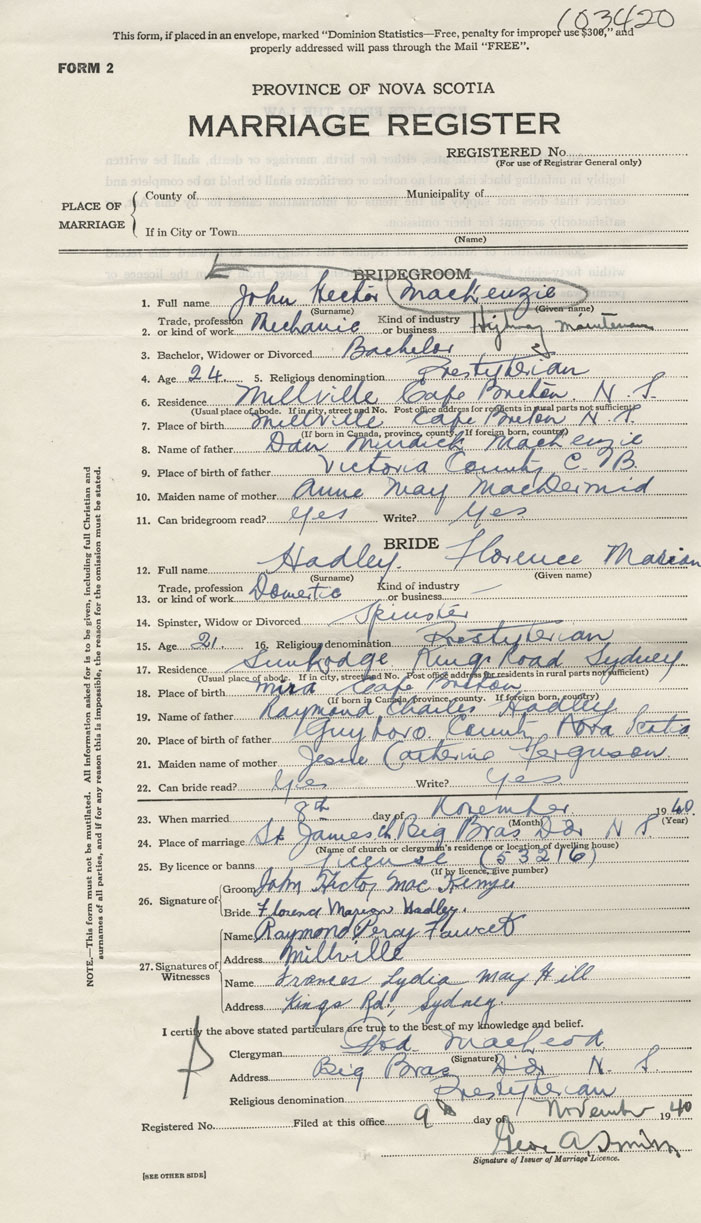 103420
This form, if placed in an envelope, marked "Dominion Statistics—Free, penalty for improper use $300," and
properly addressed will pass through the Mail "FREE".
FORM 2
PROVINCE OF NOVA SCOTIA
MARRIAGE REGISTER
REGISTERED No.
(For use of Registrar General only)
PLACE OF MARRIAGE
County of Municipality of
If in City or Town
(Name)
BRIDEGROOM
1. Full name John Hector MacKenzie
(Surname) (Given name)
2. Trade, profession or kind of work Mechanic Kind of industry or business Highway
3. Bachelor, Widower or Divorced Bachelor
4. Age 24 5. Religious denomination Presbyterian
6. Residence Millville Cape Breton N. S.
(Usual place of abode. If in city, street and No. Post office address for residents in rural parts not sufficient)
7. Place of birth Millville Cape Breton N S
(If born in Canada, province, county. If foreign born, country)
8. Name of father Dan Murdick MacKenzie
9. Place of birth of father Victoria County C. B.
10. Maiden name of mother Anne May MacDermid
11. Can bridegroom read? Yes Write? Yes
BRIDE
12. Full name Hadley. Florence Marion
(Surname) (Given name)
13. Trade, profession or kind of work Domestic Kind of industry or business —
14. Spinster, Widow or Divorced Spinster
15. Age 21. 16. Religious denomination Presbyterian
17. Residence Kings Road Sydney
(Usual place of abode. If in city, street and No. Post office address for residents in rural parts not sufficient)
18. Place of birth Mira Cape Breton
(If born in Canada, province, county. If foreign born, country)
19. Name of father Raymond Charles Hadley
20. Place of birth of father Guyboro County Nova Scotia
21. Maiden name of mother Jessie Catherine Ferguson
22. Can bride read? Yes Write? Yes
23. When married 8th day of November 1940
(Month) (Year)
24. Place of marriage St James Ch Big Bras D'or N S.
(Name of church or clergyman's residence or location of dwelling house)
25. By licence or banns license (53216)
(If by licence, give number)
26. Signature of
Groom John Hector MacKenzie
Bride Florence Marion Hadley.
27. Signatures of Witnesses
Name Raymond Percy Fawcett
Address Millville
Name Frances Lydia May Hill
Address Kings Rd., Sydney.
I certify the above stated particulars are true to the best of my knowledge and belief.
Clergyman Rod MacLeod
(Signature)
Address Big Bras D'or N. S
Religious denomination Presbyterian
Registered No. Filed at this office 9th day of November 1940
Geo A Smith
Signature of Issuer of Marriage Licence.
[SEE OTHER SIDE]
NOTE.—This form must not be mutilated. All information asked for is to be given, including full Christian and
surnames of all parties, and if for any reason this is impossible, the reason for the omission must be stated.